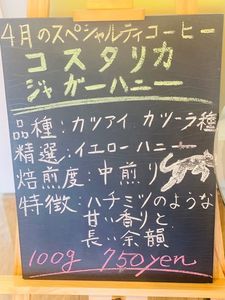 4月のスペシャルティコーヒー
コスタリカ
ジャガーハニー
品種:カツアイ カツーラ種
精選:イエローハニー
焙煎度:中煎り
特徴:ハチミツのような
甘い香りと
長い余韻
100g 750yen